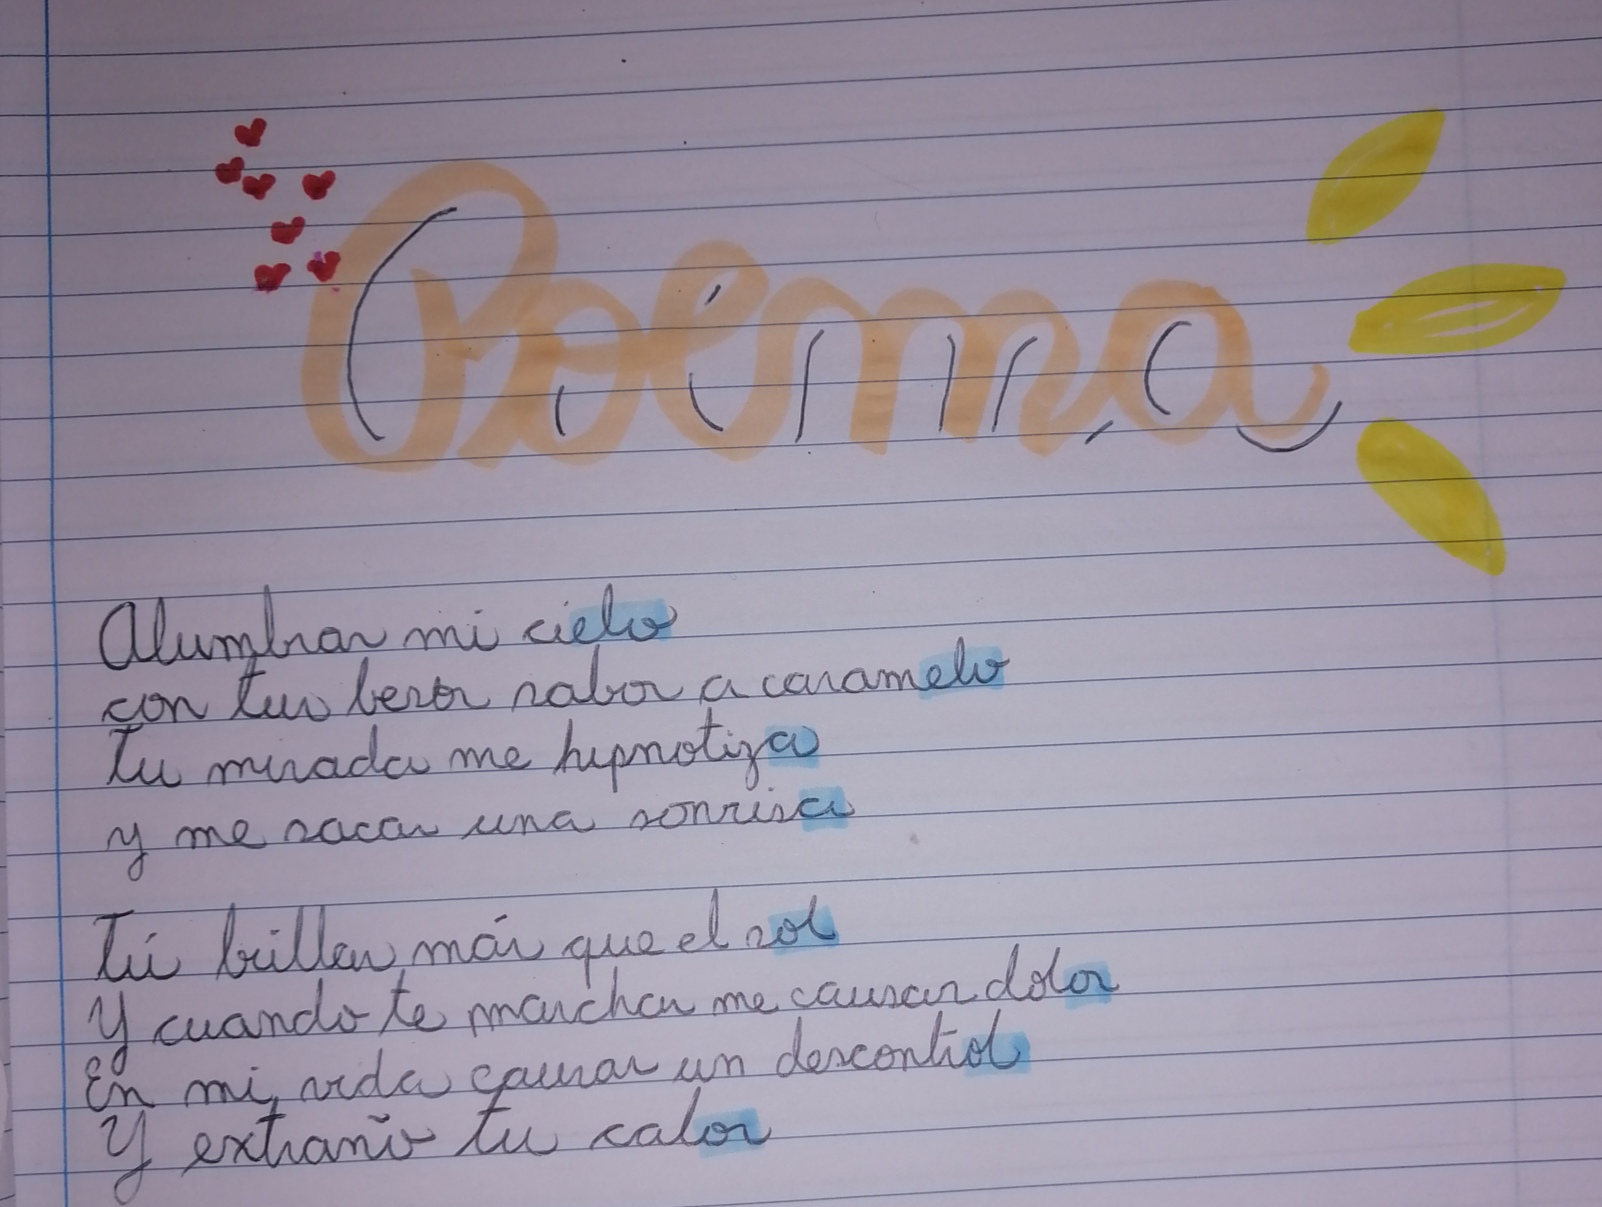 Poema
Alumbras mi cielo
con tus besos sabor a caramelo
Tu mirada me hipnotiza
y me sacas una sonrisa
Tú brillas más que el sol
Y cuando te marchas me causas dolor
En mi vida causas un descontrol
Y extraño tu calor